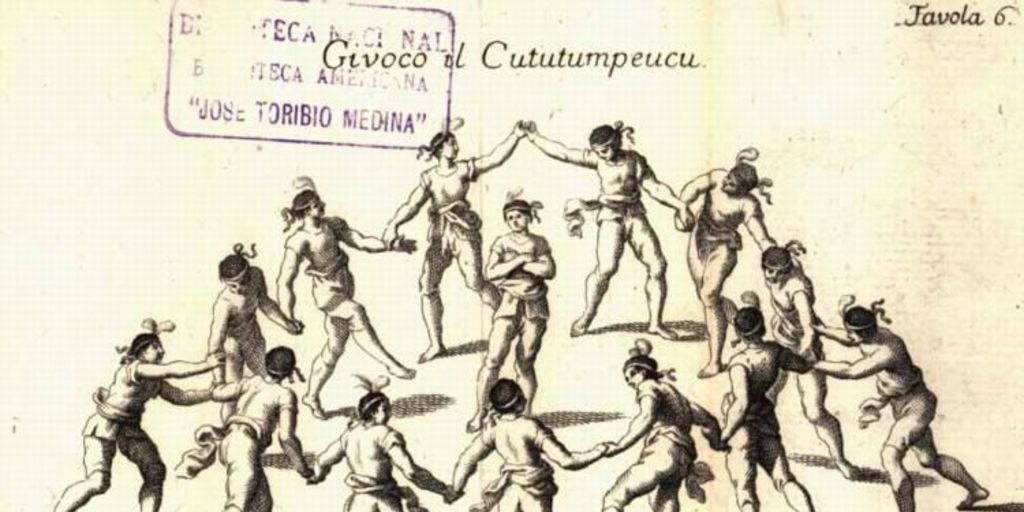 Tavola 6.
NAL
TECA AMERICANA
"JOSE TORIBIO MEDINA"
Givoco il Cututumpeucu.